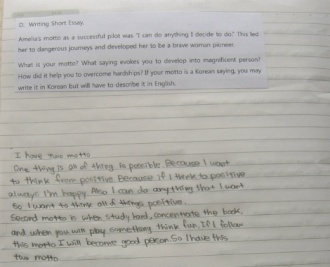 D. Writing Short Essay
Amelia's motto as a successful pilot was "I can do anything I decide to do." This led
her to dangerous journeys and developed her to be a brave woman pioneer.
What is your motto? What saying evokes you to develop into magnificent person?
How did it help you to overcome hardships? If your motto is a Korean saying, you may
write it in Korean but will have to describe it in English.
I have two motto
One thing is all of thing is possible. Because I want
to think from positive. Because if I think to positive
always I'm happy. Also I can do anything that I want
So I want to think all of things positive.
Second motto is when study hard, concentrate the book,
and when you will play something think fun. If I follow
this motto I will become good person. So I have this
two motto.